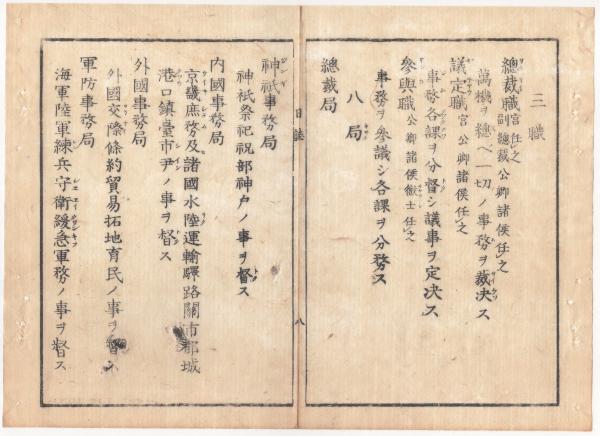 三職
總裁職 宮任之 副總裁公卿諸侯任之
萬機ヲ總ベ一切ノ事務ヲ裁決ス
議定職 宮公卿諸侯任之
事務各課ヲ分督シ議事ヲ定決ス
參與職 公卿諸侯徴士任之
事務ヲ參議シ各課ヲ分務ス
八局
總裁局
日誌
八
神祇事務局
神祇祭祀祝部神戸ノ事ヲ督ス
内國事務局
京畿庶務及諸國水陸運輸驛路關市都城
港口鎮臺市尹ノ事ヲ督ス
外國事務局
外國交際條約貿易拓地育民ノ事ヲ督ス
軍防事務局
海軍陸軍練兵守衛緩急軍務ノ事ヲ督ス